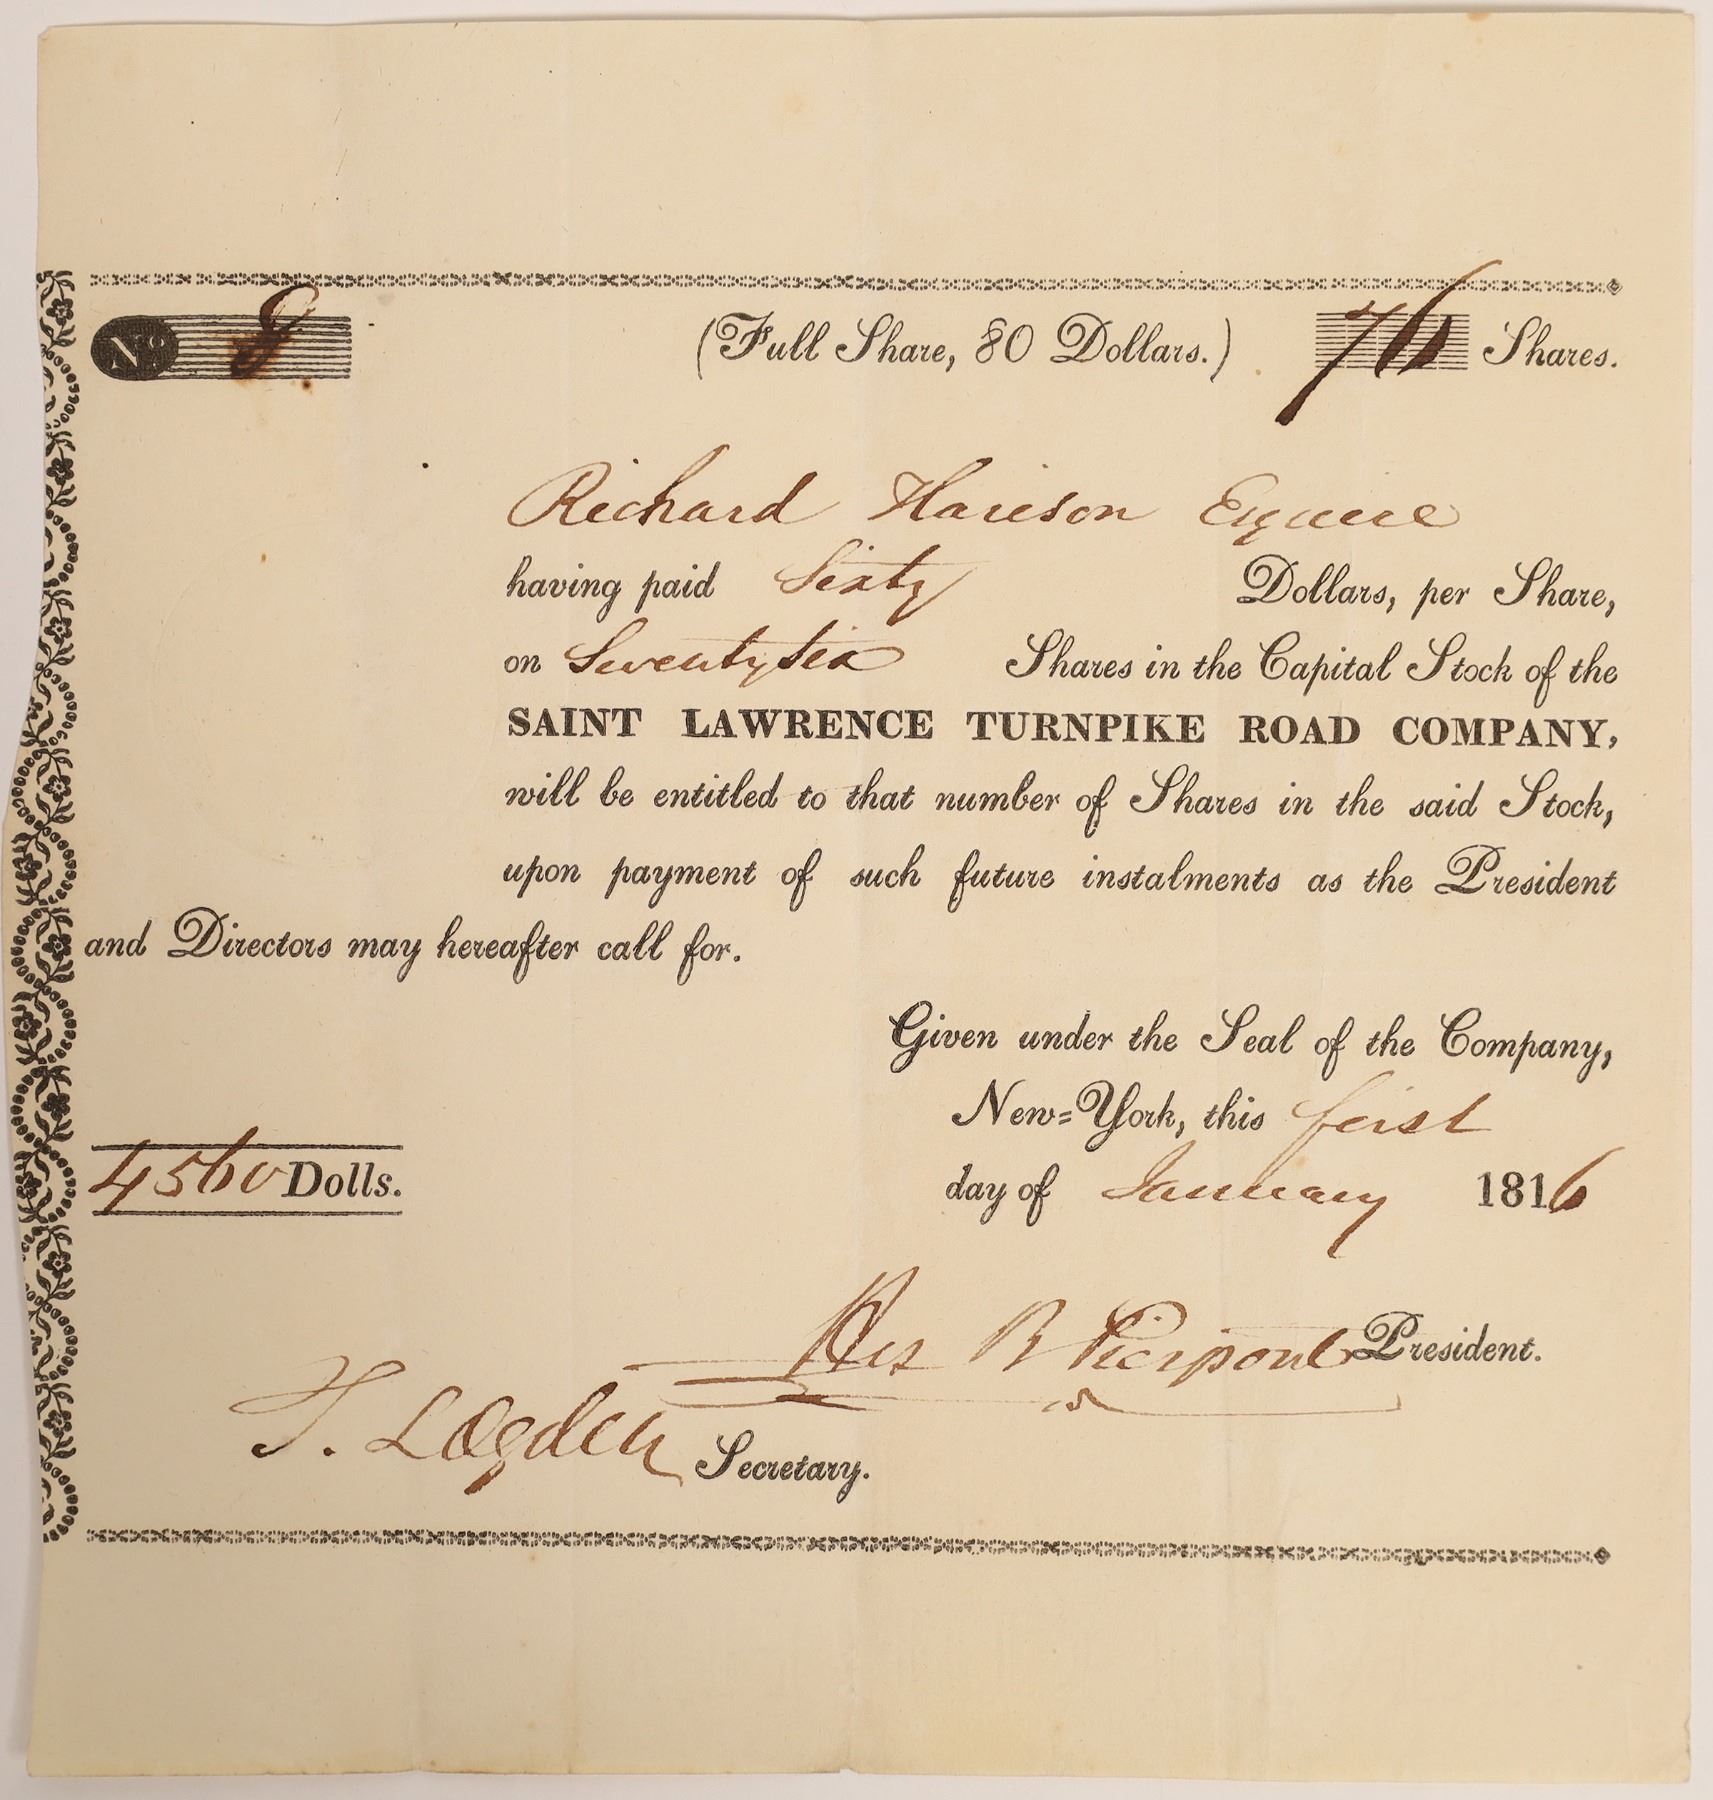 No 8 (Full Share, 80 Dollars.) 76 Shares.
Richard Harison Esquire
having paid Sixty Dollars, per Share,
on Seventy six Shares in the Capital Stock of the
SAINT LAWRENCE TURNPIKE ROAD COMPANY,
will be entitled to that number of Shares in the said Stock,
upon payment of such future instalments as the President
and Directors may hereafter call for.
Given under the Seal of the Company,
New=York, this first
4560 Dolls. day of January 1816
B Pierpont President.
T. L Ogden Secretary.